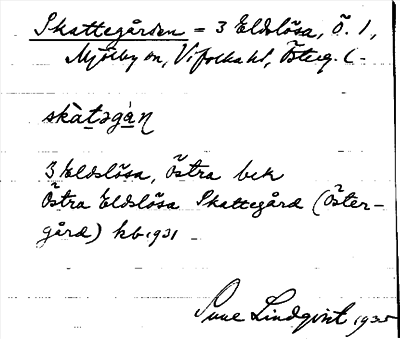 Skattegården = 3 Eldslösa, Ö. 1,
Mjölby sn, Vifolka hd, Österg. l.
skàtəgàṇ
3 Eldslösa, Östra bek
Östra Eldslösa Skattegård (Öster-
gård) kb 1931
Sune Lindqvist 1935